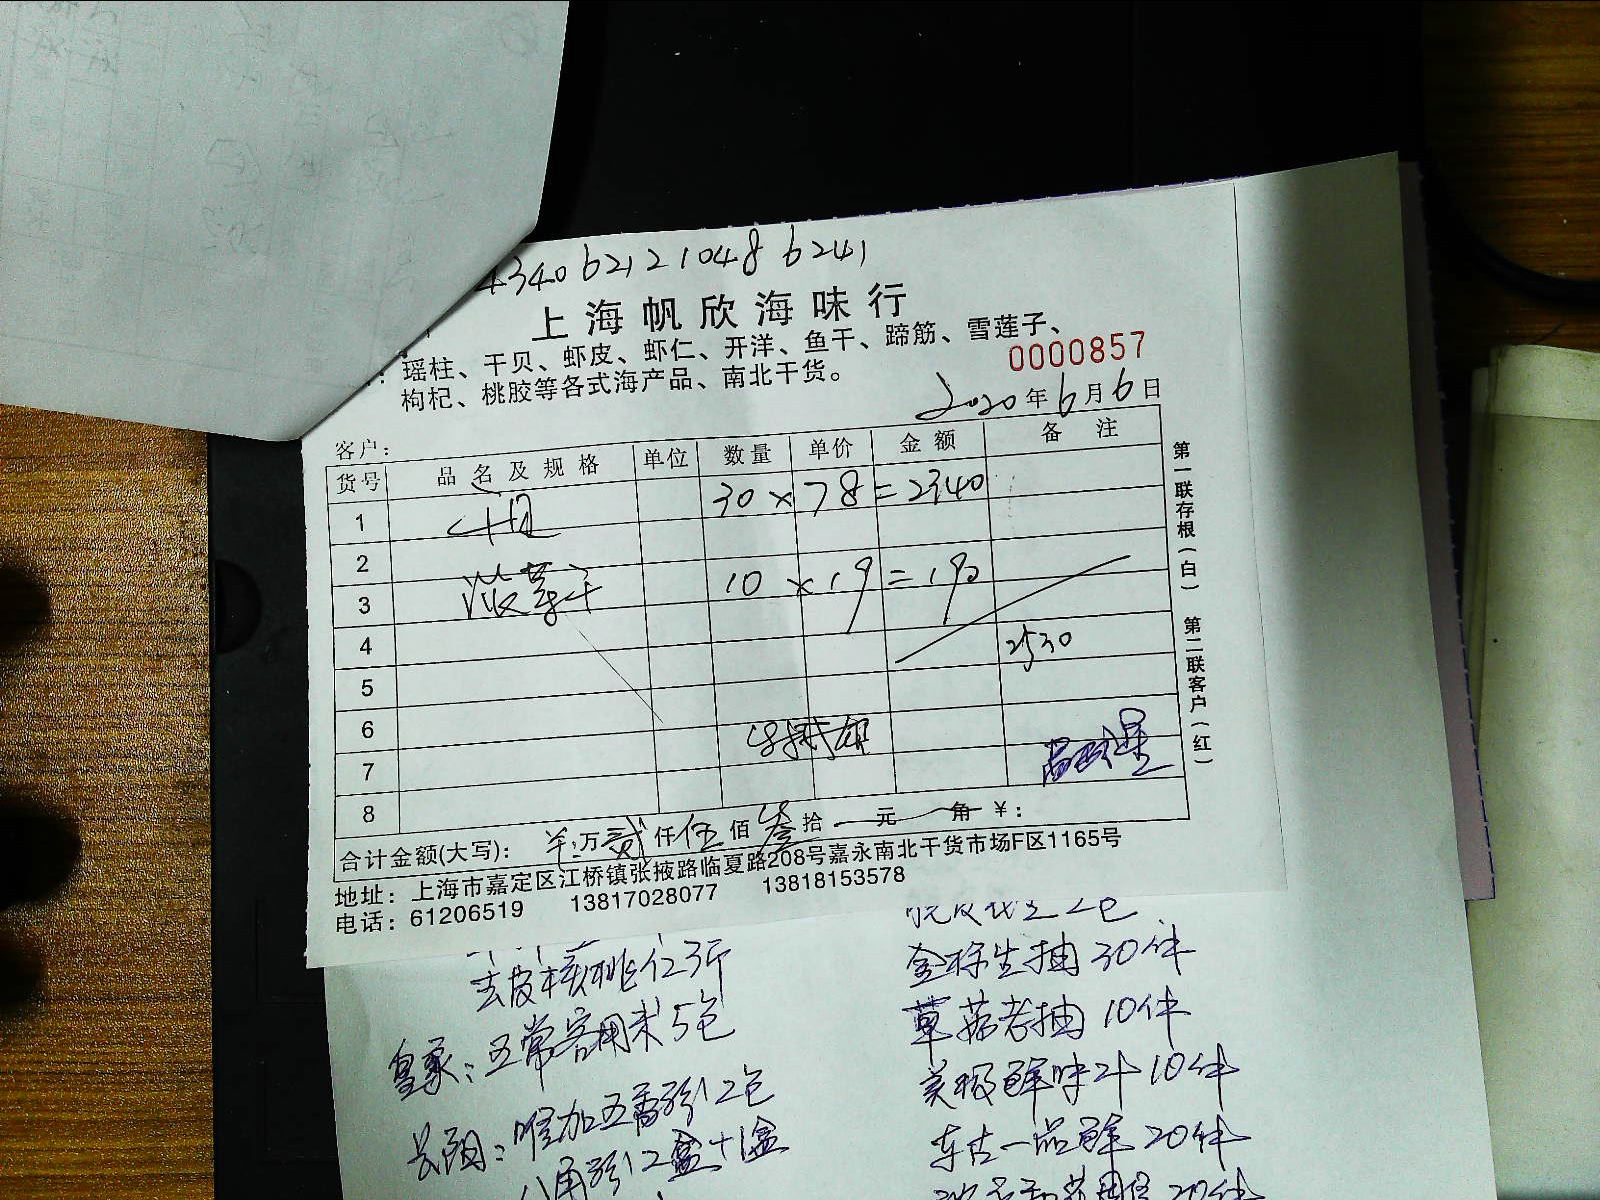 4340 6212 1048 6241
上海帆欣海味行
瑶柱、干贝、虾皮、虾仁、开洋、鱼干、蹄筋、雪莲子、
枸杞、桃胶等各式海产品、南北干货。
0000857
2020年6月6日
客户：
货号 品名及规格 单位 数量 单价 金额 备注
1 30×78=2340
2
3 菠菜干 10×19=190
4 2530
5
6
7
8
合计金额(大写)： 万贰仟伍佰叁拾 元 角 ¥：
地址：上海市嘉定区江桥镇张掖路临夏路208号嘉永南北干货市场F区1165号
电话：61206519 13817028077 13818153578
第一联存根(白) 第二联客户(红)
去皮核桃仁3斤
皇象：五常客用米5包
长阳：味加五香粉2包
八角粉2盒+1盒
2包
金标生抽30件
草菇老抽10件
美极鲜味汁10件
东古一品鲜20件